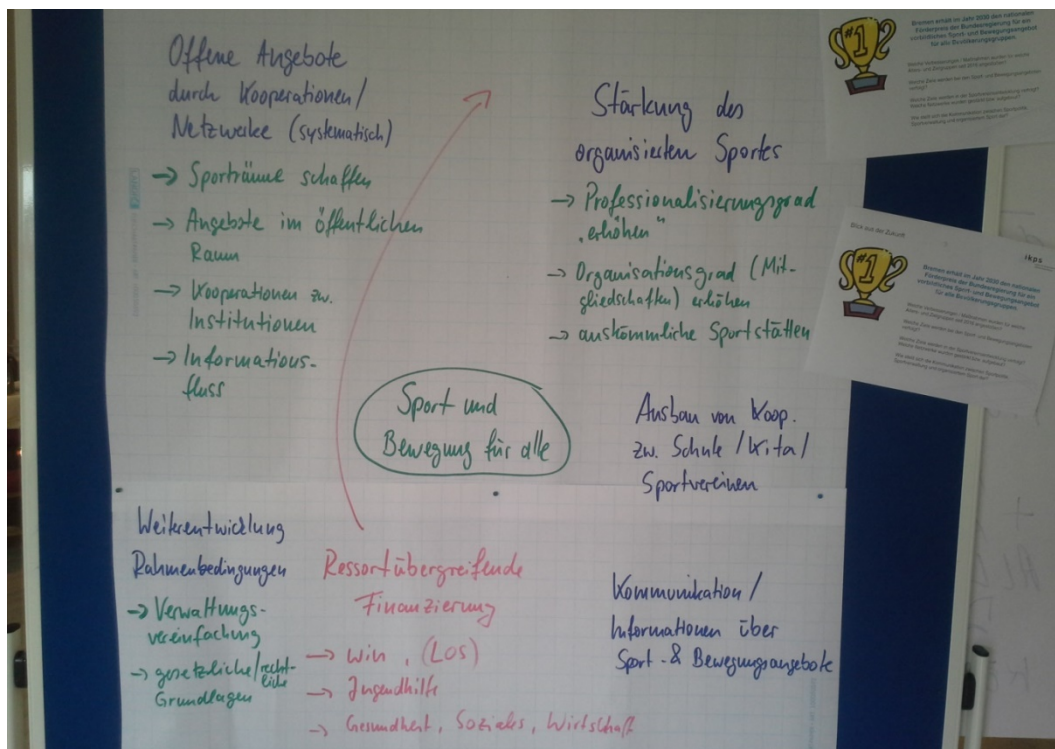 Offene Angebote
durch Kooperationen/
Netzwerke (systematisch)
→ Sporträume schaffen
→ Angebote im öffentlichen
Raum
→ Kooperationen zw.
Institutionen
→ Informations-
fluss
Stärkung des
organisierten Sportes
→ Professionalisierungsgrad
„erhöhen“
→ Organisationsgrad (Mit-
gliedschaften) erhöhen
→ auskömmliche Sportstätten
Sport und
Bewegung für alle
Ausbau von Koop.
zw. Schule / Kita /
Sportvereinen
Weiterentwicklung
Rahmenbedingungen
→ Verwaltungs-
vereinfachung
→ gesetzliche/recht-
liche
Grundlagen
Ressortübergreifende
Finanzierung
→ Win, (LOS)
→ Jugendhilfe
→ Gesundheit, Soziales, Wirtschaft
Kommunikation /
Informationen über
Sport- & Bewegungsangebote
#1
Bremen erhält im Jahr 2030 den nationalen
Förderpreis der Bundesregierung für ein
vorbildliches Sport- und Bewegungsangebot
für alle Bevölkerungsgruppen.
Blick aus der Zukunft
ikps
#1
Bremen erhält im Jahr 2030 den nationalen
Förderpreis der Bundesregierung für ein
vorbildliches Sport- und Bewegungsangebot
für alle Bevölkerungsgruppen.